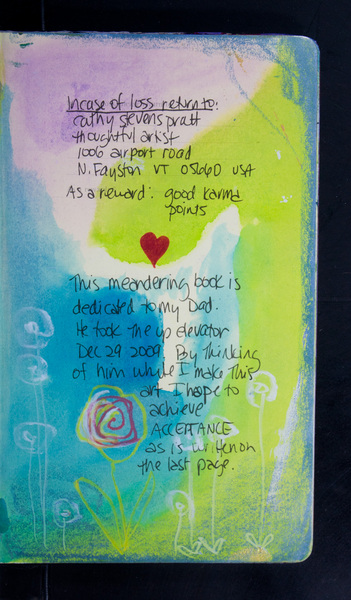 Incase of loss return to:
cathy stevens pratt
thoughtful artist
1006 airport road
N. Fayston VT 05660 USA
As a reward: good karma
points
This meandering book is
dedicated to my Dad.
He took the up elevator
Dec 29 2009. By thinking
of him while I make this
art I hope to
achieve
ACCEPTANCE
as is written on
the last page.